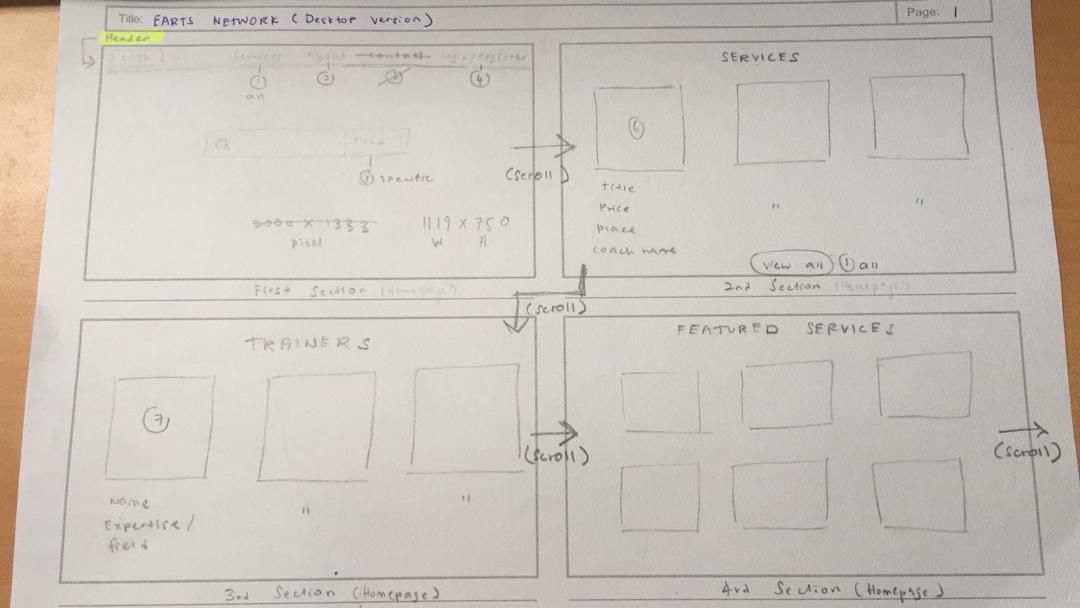 Title: EARTS NETWORK (Desktop version)
Page: 1
Header
Logo Services About contact Login/Register
1 3 4
all
Find
1 specific
3000 x 1333
pixel
1119 x 750
W H
First Section (Homepage)
(scroll)
SERVICES
6
Title
Price " "
Place
Coach name
view all 1 all
2nd Section (Homepage)
(scroll)
TRAINERS
7
Name
Expertise/ " "
field
3rd Section (Homepage)
(scroll)
FEATURED SERVICES
(scroll)
4rd Section (Homepage)